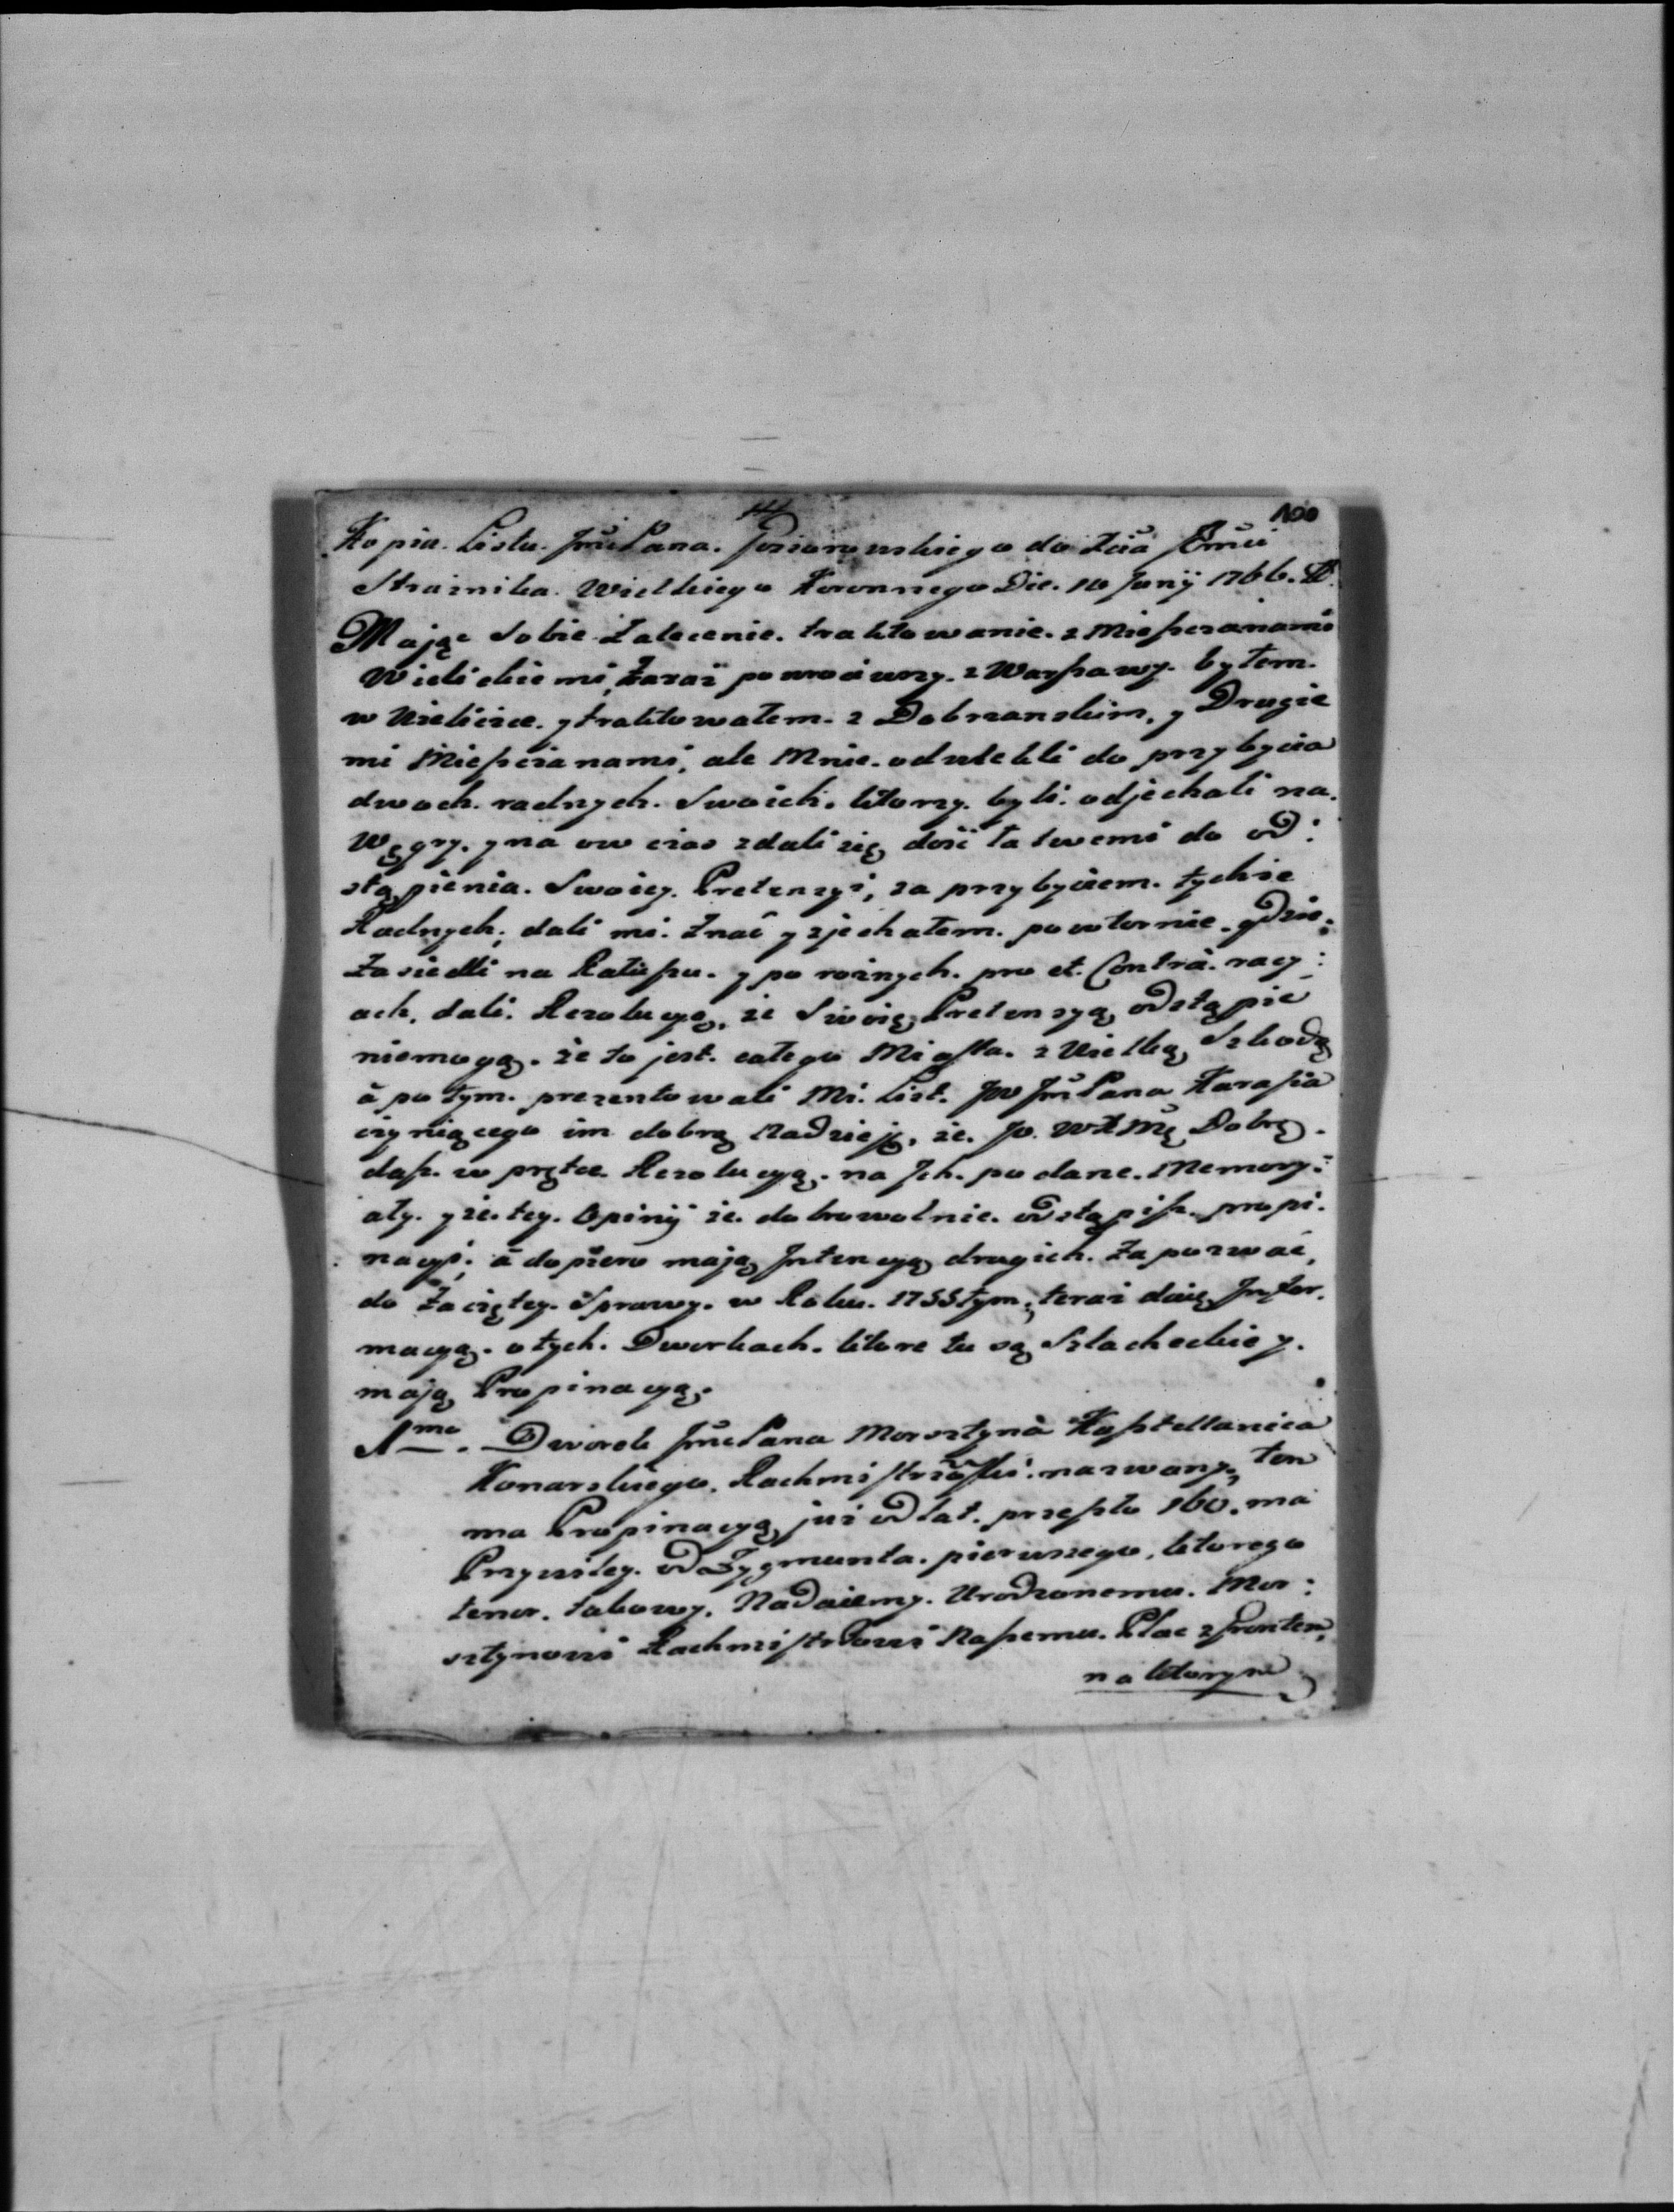 14 100
Kopia. Listu. Jmć Pana. do Xcia Jmci
Strażnika. Wielkiego Koronnego Die. 10 Junij 1766. R.
Mając Sobie Zalecenie. traktowanie. z Mieszczanami
Wielickiemi, Zaraz powrociwszy. z Warszawy. byłem.
w Wieliczce. y traktowałem. z Dobrzanskim, y Drugie
mi Mieszczanami, ale Mnie. odwlekli do przybycia
dwoch. radnych. Swoich. ktorzy. byli. odjechali na.
Węgry. y na ow czas zdali się dość łatwemi do od:
stąpienia. Swoiey. Pretensyi, za przybyciem. tychże
Radnych; dali mi. Znać y zjechałem. powtornie. gdzie.
Zasiedli na Ratuszu. y po rożnych. pro et. Contra. racy:
ach, dali. Rezolucyą, że Swoię Pretensyą odstąpic
niemogą. że to jest. całego Miasta. z Wielką Szkodą
à po tym. prezentowali Mi. List. JW Jmć Pana Karasia
czyniącego im dobrą Nadzieję, że. W. WXMć Dobrą.
dasz. w prętce Rezolucyą. na Jch. podane. Memory:
ały. y że. tey. Opinij że. dobrowolnie. odstąpisz. propi.
nacyi; à dopiero mają Intencyą drugich. Zapozwać,
do Zaciętey. Sprawy. w Roku. 1755tym; teraz daię Infor.
macyą. o tych. Dworkach. ktore tu są Szlacheckie y.
mają Propinacyą.
1mo. Dworek Jmć Pana Morsztyna Kasztellanica
Konarskiego. nazwany, ten
ma Propinacyą już od lat. przeszło 160. ma
Przywiley. od Zygmunta. pierwszego, ktorego
tenor. takowy. Nadaiemy. Urodzonemu. Mor:
sztynowi Rachmistrzowi Naszemu. Plac z fruntem,
na ktorym